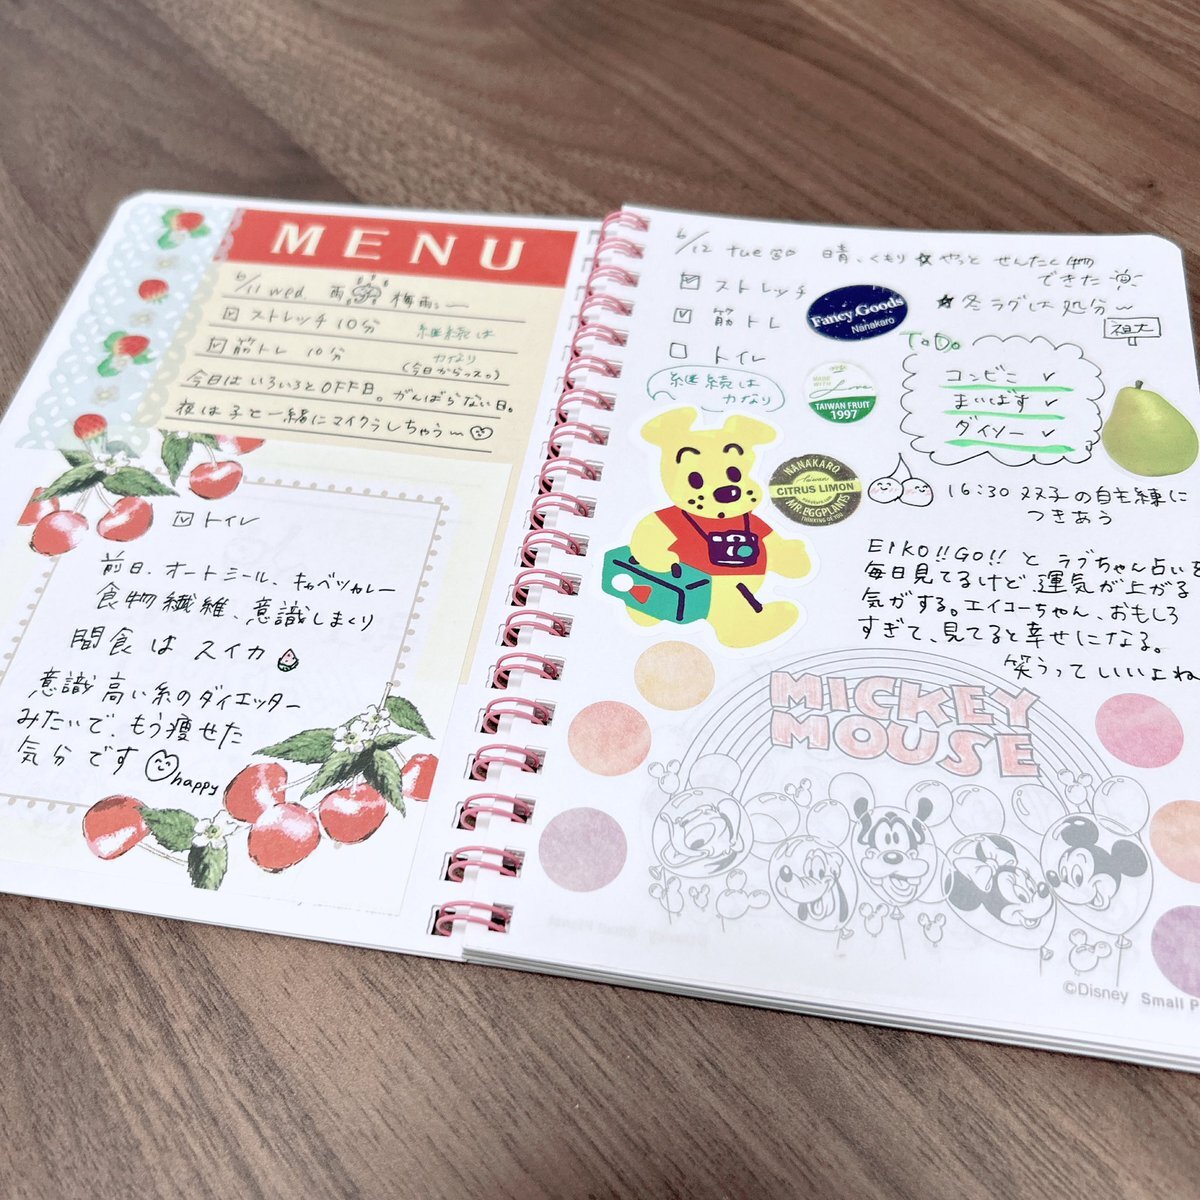 MENU
6/11 wed 雨 梅雨〜
☑ ストレッチ 10分
継続は
☑ 筋トレ 10分
力なり
(今日からっス。)
今日はいろいろとOFF日。がんばらない日。
夜は子と一緒にマイクラしちゃう〜
☑ トイレ
前日、オートミール、キャベツカレー
食物繊維、意識しまくり
間食は スイカ
意識高い系のダイエッター
みたいで、もう痩せた
気分です happy
6/12 tue 晴、くもり ☆やっと せんたく物
できた
☑ ストレッチ
★冬ラグした処分〜
☑ 筋トレ
□ トイレ
継続は
力なり
Fancy Goods
Nanakaro
MADE WITH
Love
TAIWAN FRUIT
1997
NANAKARO
Taiwan
CITRUS LIMON
MR.EGGPLANTS
THINKING OF YOU
ToDo
コンビニ ✓
まいばす ✓
ダイソー ✓
16:30 双子の自主練に
つきあう
EIKO!!GO!! と ラブちゃん占いを
毎日見てるけど 運気が上がる
気がする。エイコーちゃん、おもしろ
すぎて、見てると幸せになる。
笑うっていいよね
MICKEY
MOUSE
©Disney Small P